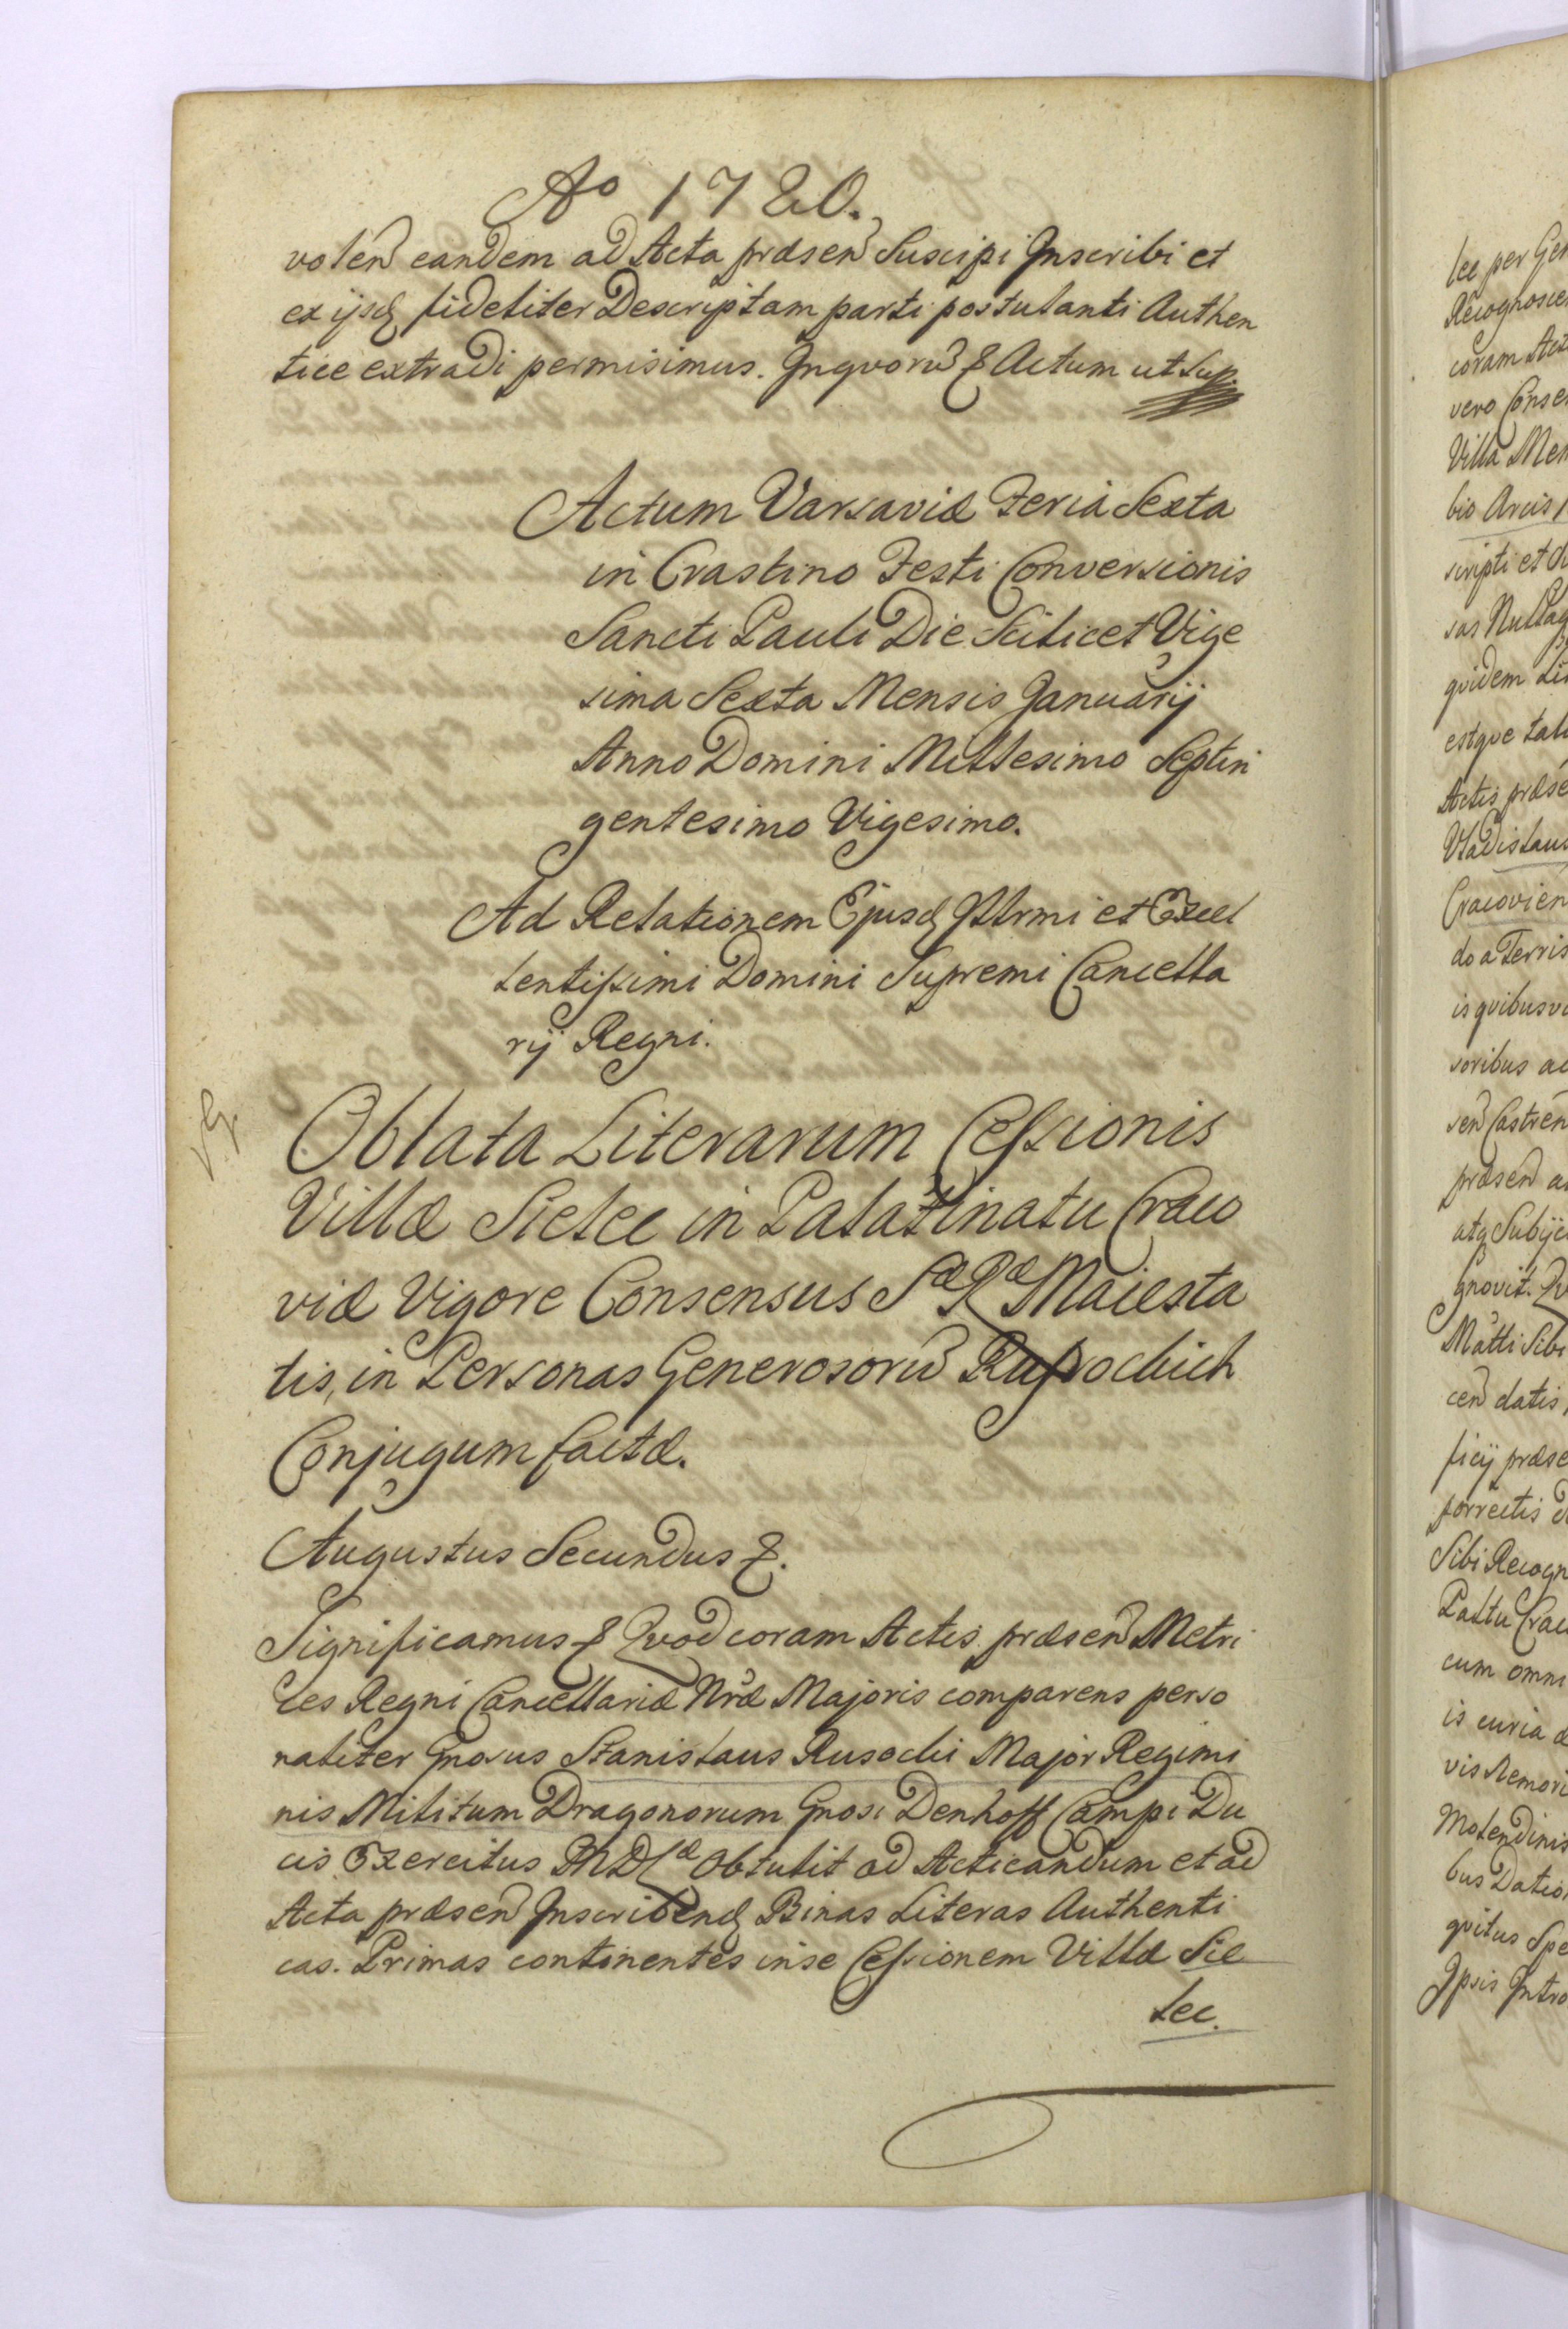 Ao 1720.
volen eandem ad Acta præsen Suscipi Inscribi et
ex ijsq fideliter Descriptam parti postulanti Authen
tice extradi permisimus. Inqvorũ & Actum ut Sup.
Actum Varsaviæ Feria Sexta
in Crastino Festi Conversionis
Sancti Pauli Die Scilicet Vige
sima Sexta Mensis Januarij
Anno Domini Millesimo Septin
gentesimo Vigesimo.
Ad Relationem Ejusq Illrmi et Excel
lentissimi Domini Supremi Cancella
rij Regni.
Oblata Literarum Cessionis
Villæ Sielec in Palatinatu Craco
viæ Vigore Consensus Sæ Ræ Maiesta
tis, in Personas Generosorũ
Conjugum factæ.
Augustus Secundus &.
Significamus & Qvod coram Actis præsen Metri
ces Regni Cancellariæ Nræ Majoris comparens perso
naliter Gnosus Stanislaus Rusocki Major Regimi
nis Militum Dragonorum Gnosi Denhoff Campi Du
cis Exercitus MDLæ Obtulit ad Acticandum et ad
Acta præsen Inscribendq Binas Literas Authenti
cas. Primas continentes in se Cessionem Villæ Sie
lec.
lec per
vero
Villa
scripti et
qvidem
estqve
Actis
Vladislaus
Cracovien
do a Terris
soribus
atq
gnovit.
cen datis,
ficij
Sibi Recogn
cum omni
is curia
Molendinis
bus
Ipsis